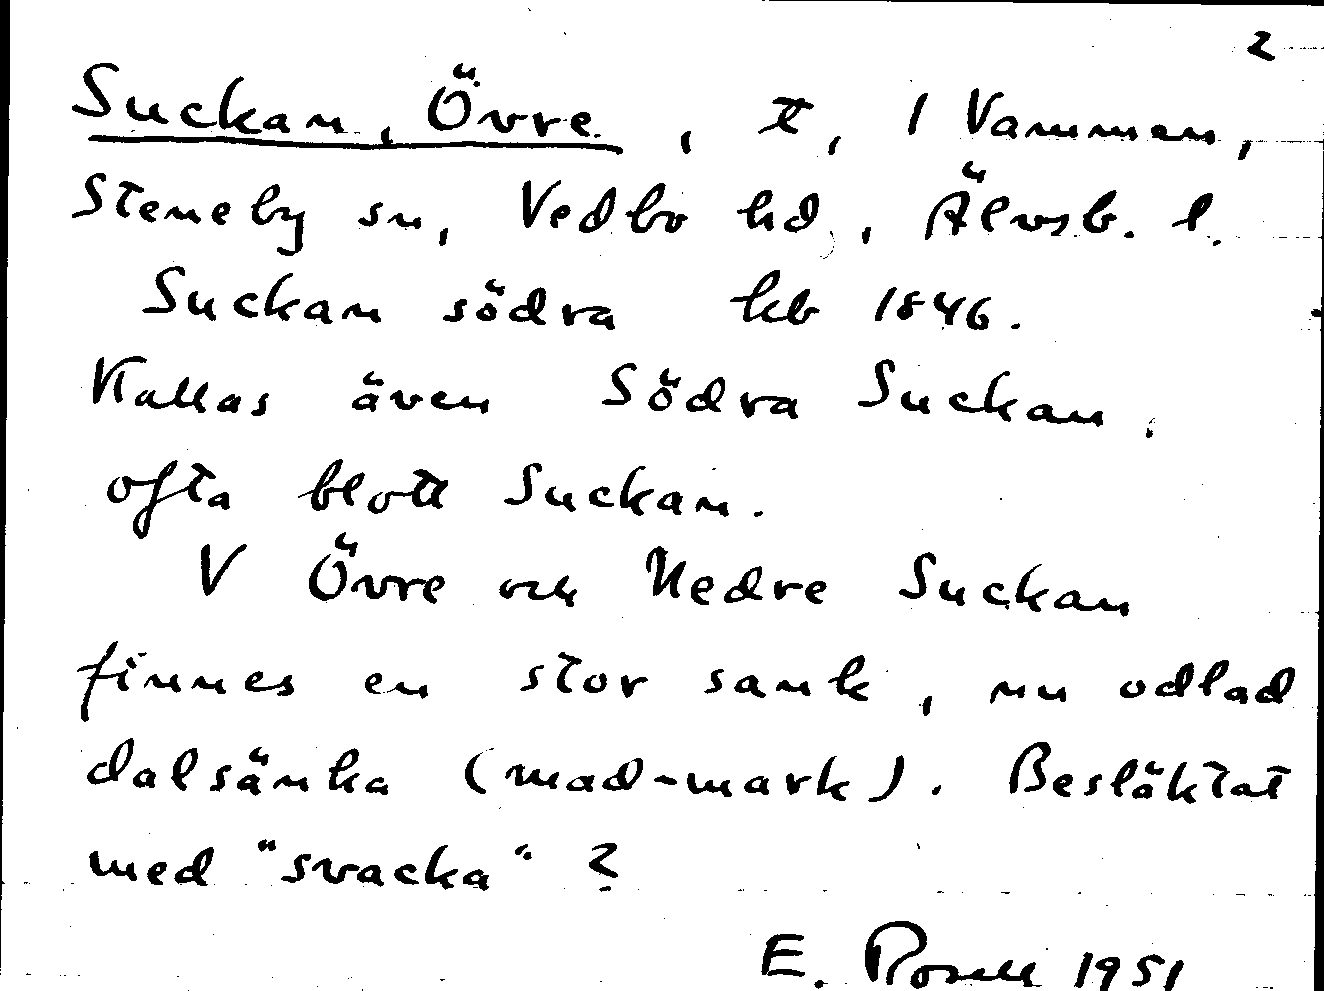 2
Suckan, Övre, tt, 1 Vammen,
Steneby sn, Vedbo hd, Älvsb. l.
Suckan södra kb 1846.
Kallas även Södra Suckan,
ofta blott Suckan.
V Övre och Nedre Suckan
finnes en stor sank, nu odlad
dalsänka (mad-mark). Besläktat
med "svacka" ?
E. Rosell 1951